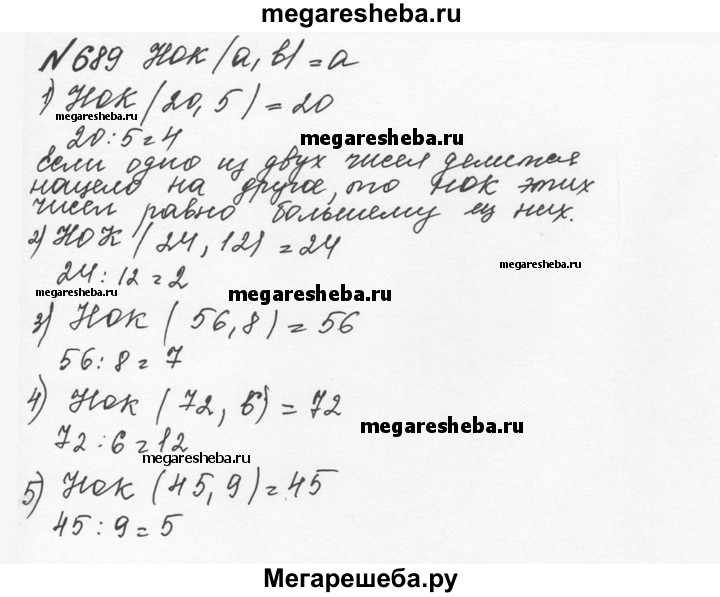 megaresheba.ru
№689 НОК (а, в) = а
1) НОК (20, 5) = 20
megaresheba.ru
20 : 5 = 4
megaresheba.ru
если одно из двух чисел делится
нацело на другое, то НОК этих
чисел равно большему из них.
2) НОК (24, 12) = 24
megaresheba.ru
24 : 12 = 2
megaresheba.ru
megaresheba.ru
3) НОК (56, 8) = 56
56 : 8 = 7
4) НОК (72, 6) = 72
megaresheba.ru
72 : 6 = 12
megaresheba.ru
5) НОК (45, 9) = 45
45 : 9 = 5
Мегарешеба.ру